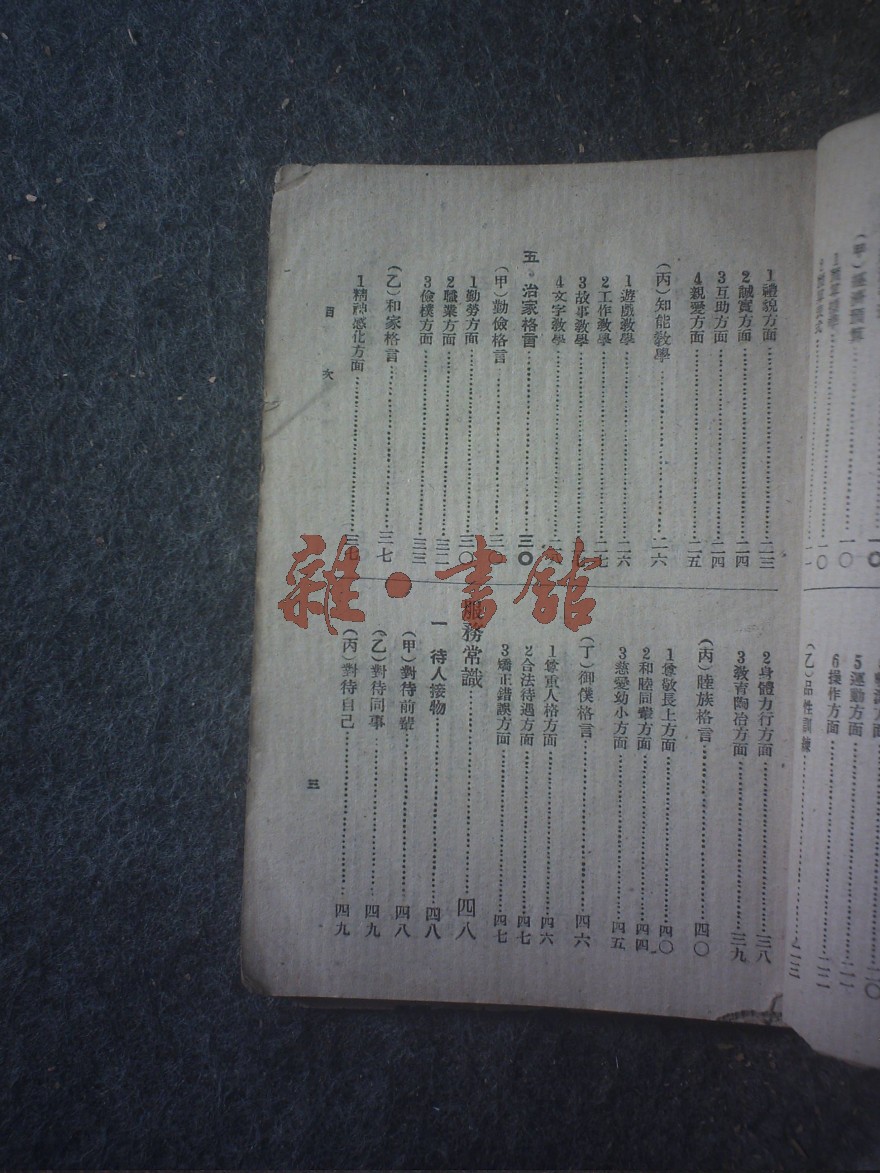 1禮貌方面……二三
2誠實方面……二四
3互助方面……二四
4親愛方面……二五
（丙）知能敎學……二六
1遊戲敎學……二六
2工作敎學……二七
3故事敎學
4文字敎學
五・治家格言……三〇
（甲）勤儉格言
1勤勞方面……三〇
2職業方面……三二
3儉樸方面……三三
（乙）和家格言……三七
1精神感化方面……三七
2身體力行方面……三八
3敎育陶冶方面……三九
（丙）睦族格言……四〇
1尊敬長上方面……四〇
2和睦同輩方面……四四
3慈愛幼小方面……四五
（丁）御僕格言……四六
1尊重人格方面……四六
2合法待遇方面……四七
3矯正錯誤方面……四七
服務常識……四八
一 待人接物……四八
（甲）對待前輩……四八
（乙）對待同事……四九
（丙）對待自己……四九
目次
三
5運動方面
6操作方面
（乙）品性訓練
雜・書館